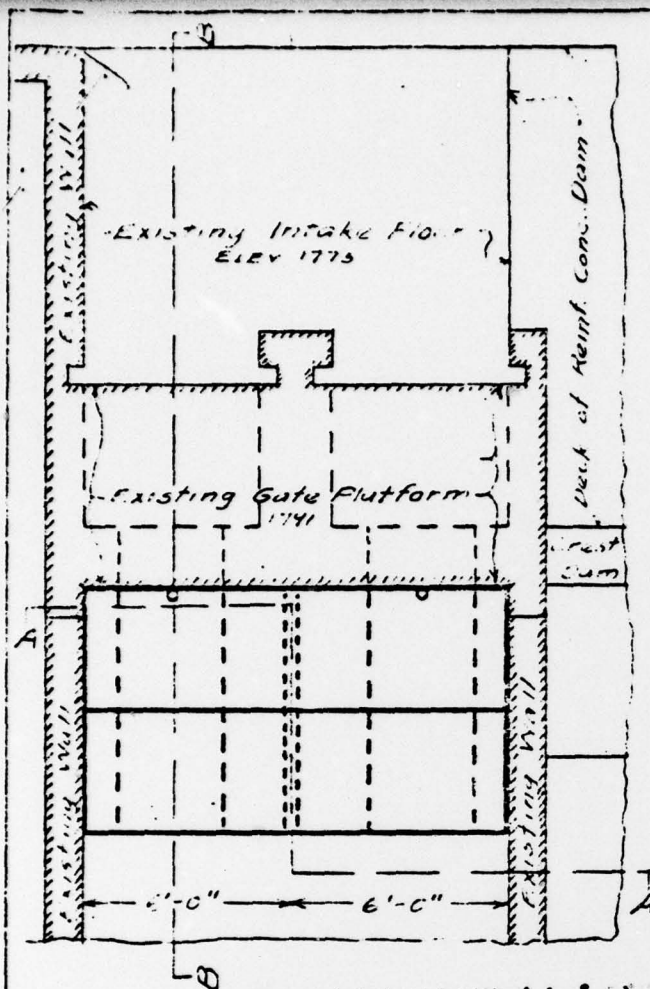 B
Existing Wall
Existing Intake Floor
ELEV 1775
Deck of Reinf. Conc. Dam
Existing Gate Platform
1741
Crest
Dam
A
Existing Wall
Existing Wall
6'-0"
6'-0"
A
B